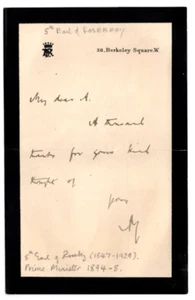 5th Earl of Rosebery
38, Berkeley Square. W.
My dear A.
A thousand
thanks for your kind
thought of
yours
AR
5th Earl of Rosebery (1847-1929).
Prime Minister 1894-5.